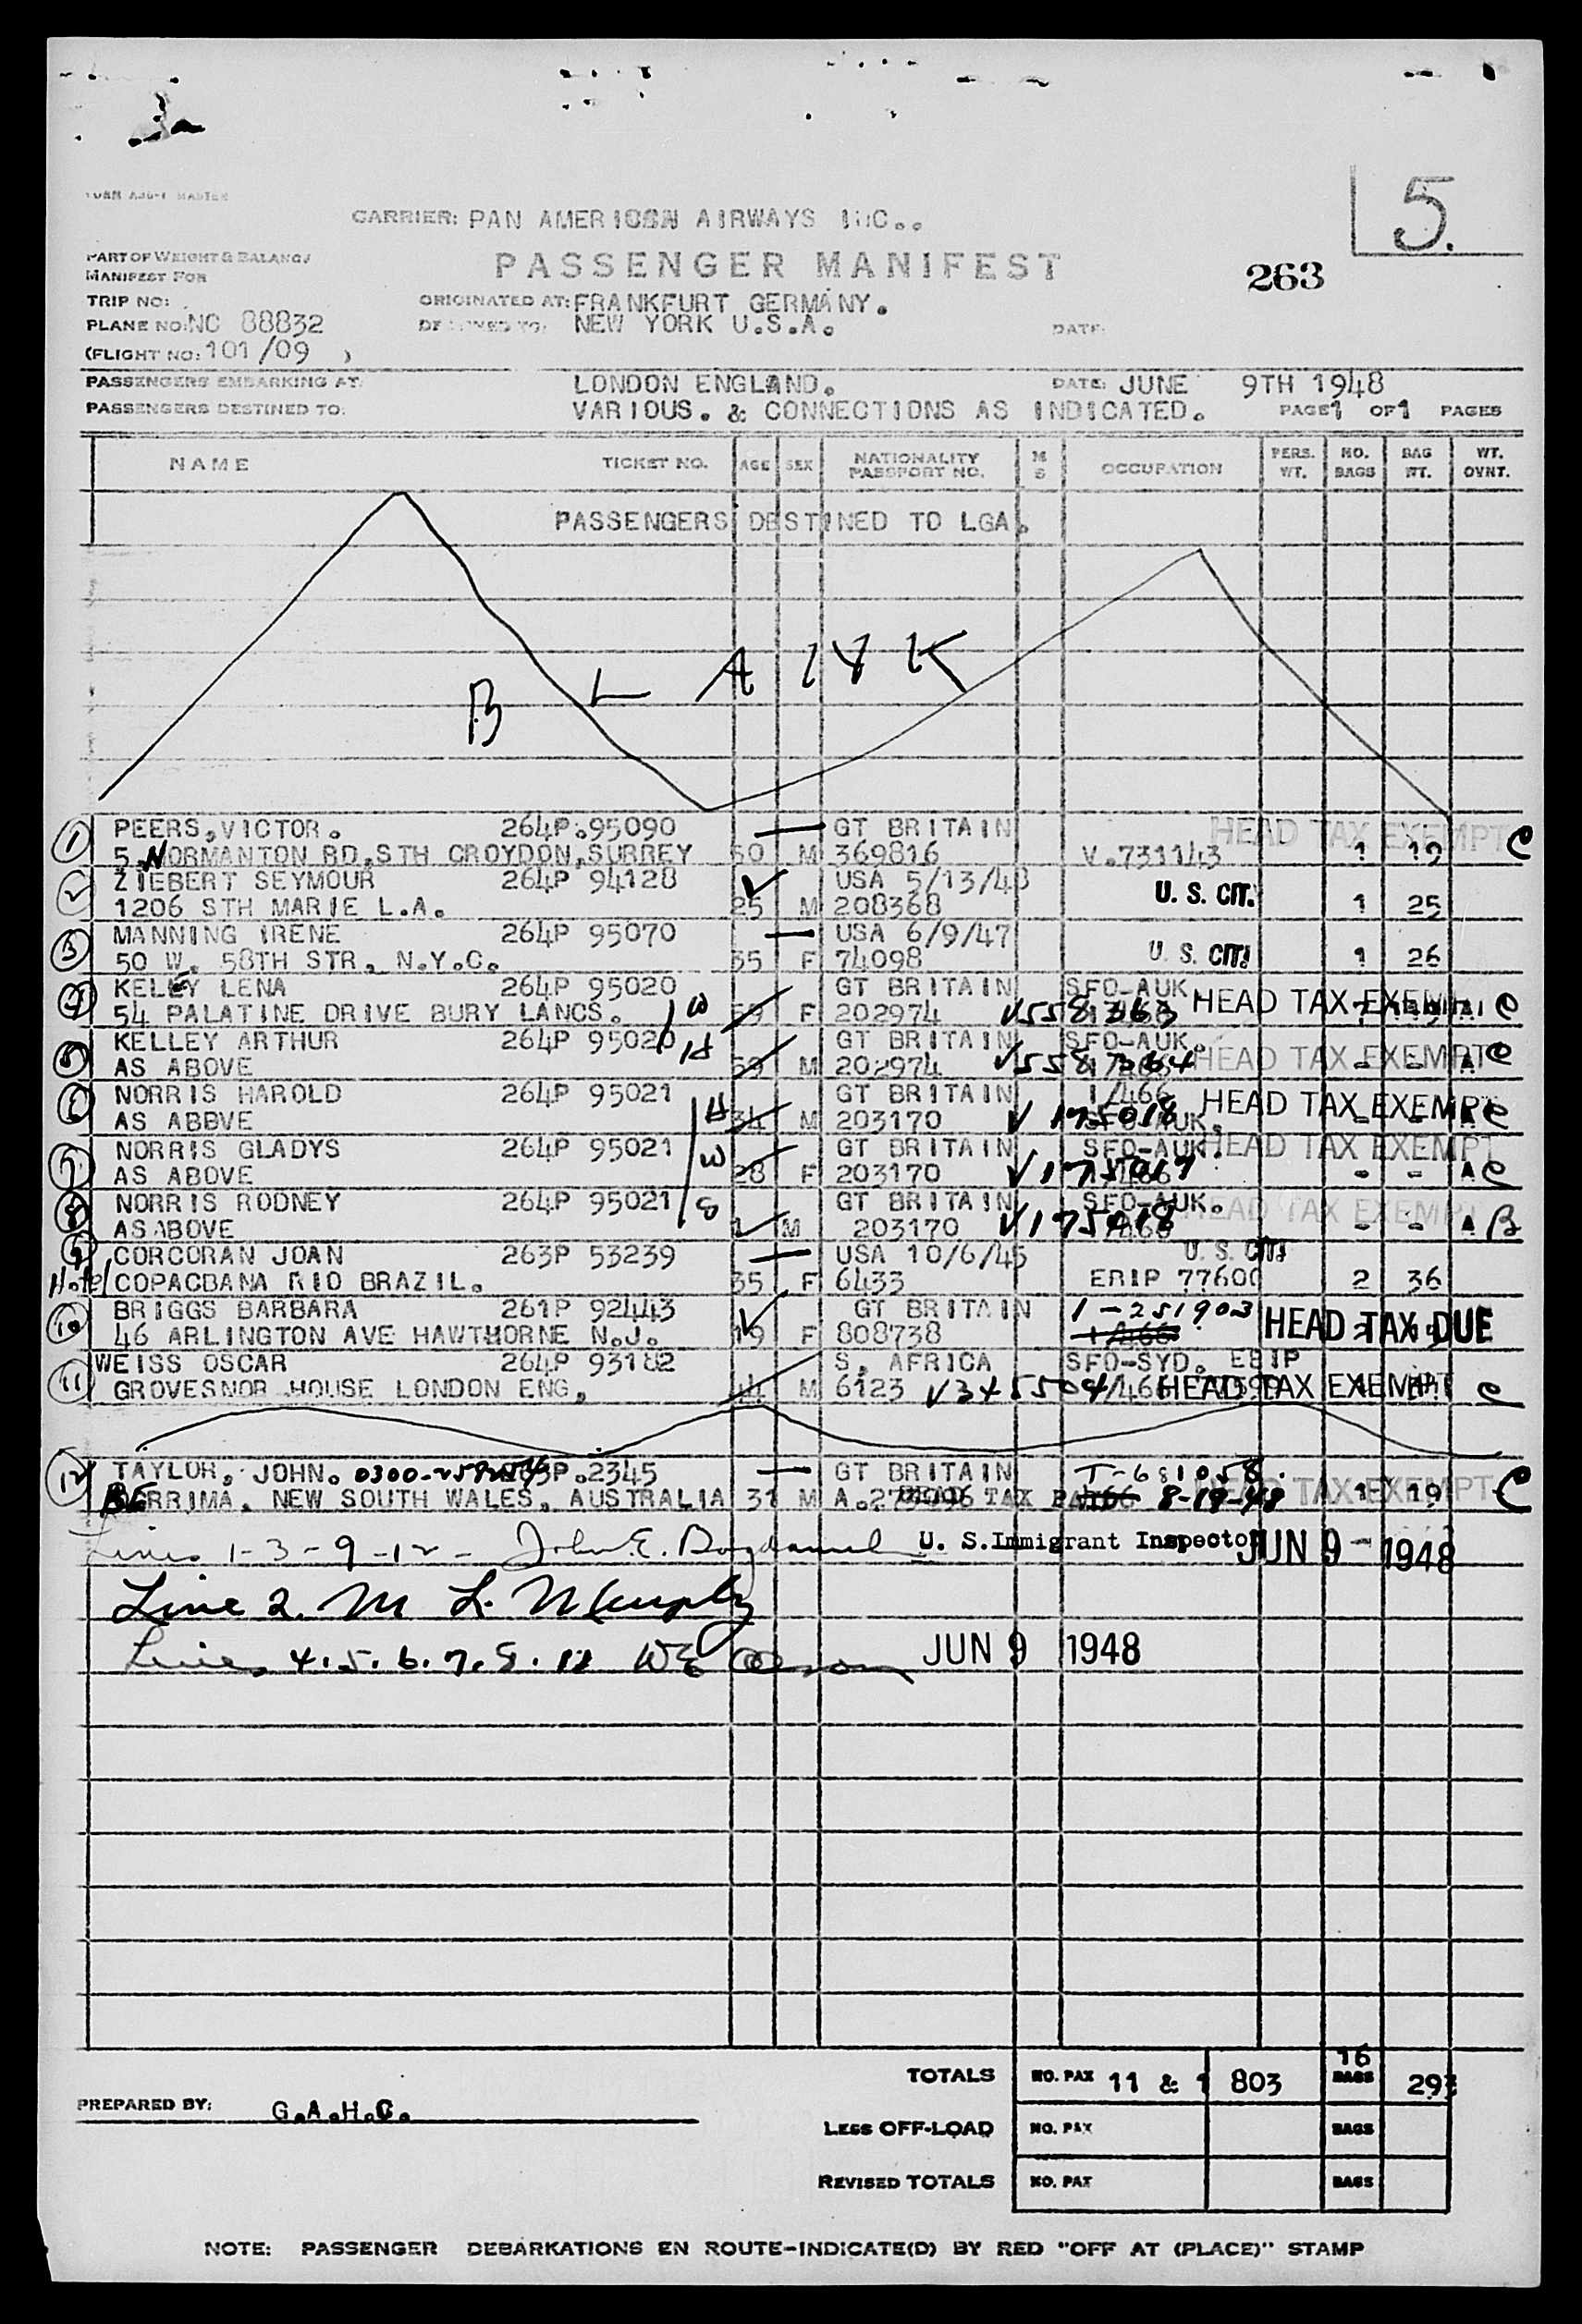 FORM
CARRIER: PAN AMERICAN AIRWAYS INC..
5.
PART OF WEIGHT & BALANCE
MANIFEST FOR
PASSENGER MANIFEST
263
TRIP NO:
ORIGINATED AT: FRANKFURT GERMANY.
PLANE NO: NC 88832
DESTINED TO: NEW YORK U.S.A.
DATE:
(FLIGHT NO: 101/09 )
PASSENGERS EMBARKING AT: LONDON ENGLAND. DATE: JUNE 9TH 1948
PASSENGERS DESTINED TO: VARIOUS. & CONNECTIONS AS INDICATED. PAGE 1 OF 1 PAGES
NAME TICKET NO. AGE SEX NATIONALITY PASSPORT NO. M S OCCUPATION PERS. WT. NO. BAGS BAG WT. WT. OVNT.
PASSENGERS DESTINED TO LGA.
BLANK
1 PEERS,VICTOR. 264P.95090 GT BRITAIN HEAD TAX EXEMPT
5,NORMANTON RD,STH CROYDON,SURREY 50 M 369816 V.731143 1 19 C
2 ZIEBERT SEYMOUR 264P 94128 USA 5/13/48
1206 STH MARIE L.A. 25 M 208368 U. S. CIT. 1 25
3 MANNING IRENE 264P 95070 USA 6/9/47
50 W. 58TH STR, N.Y.C. 35 F 74098 U. S. CIT. 1 26
4 KELLEY LENA 264P 95020 GT BRITAIN SFO-AUK
54 PALATINE DRIVE BURY LANCS. W 59 F 202974 V558363 HEAD TAX EXEMPT C
5 KELLEY ARTHUR 264P 95020 H GT BRITAIN SFO-AUK.
AS ABOVE 59 M 202974 HEAD TAX EXEMPT - - A C
6 NORRIS HAROLD 264P 95021 GT BRITAIN 1/466
AS ABBVE H 34 M 203170 V 175018 SFO-AUK. HEAD TAX EXEMPT - - A C
7 NORRIS GLADYS 264P 95021 GT BRITAIN SFO-AUK. HEAD TAX EXEMPT
AS ABOVE W 28 F 203170 V175017 - - A C
8 NORRIS RODNEY 264P 95021 GT BRITAIN SFO-AUK. HEAD TAX EXEMPT
ASABOVE S 1 M 203170 V175018 - - A B
9 CORCORAN JOAN 263P 53239 USA 10/6/45 U. S. CIT.
Hotel COPACBANA RIO BRAZIL. 35 F 6433 ERIP 77600 2 36
10 BRIGGS BARBARA 261P 92443 GT BRITAIN 1-251903
46 ARLINGTON AVE HAWTHORNE N.J. 19 F 808738 HEAD TAX DUE
11 WEISS OSCAR 264P 93182 S. AFRICA SFO-SYD. ERIP
GROVESNOR HOUSE LONDON ENG, 44 M 6123 V345504 HEAD TAX EXEMPT C
12 TAYLOR, JOHN. P.2345 GT BRITAIN T-681058.
BERRIMA, NEW SOUTH WALES, AUSTRALIA 31 M HEAD TAX PAID 8-19-48 HEAD TAX EXEMPT 1 19 C
Lines 1-3-9-12- John E. U. S.Immigrant Inspector JUN 9 - 1948
Line 2. M L. Murphy
Lines 4.5.6.7.8.11 WE Olson JUN 9 1948
TOTALS NO. PAX 11 & 1 803 16 BAGS 293
PREPARED BY: G.A.H.C.
LESS OFF-LOAD NO. PAX BAGS
REVISED TOTALS NO. PAX BAGS
NOTE: PASSENGER DEBARKATIONS EN ROUTE-INDICATE(D) BY RED "OFF AT (PLACE)" STAMP